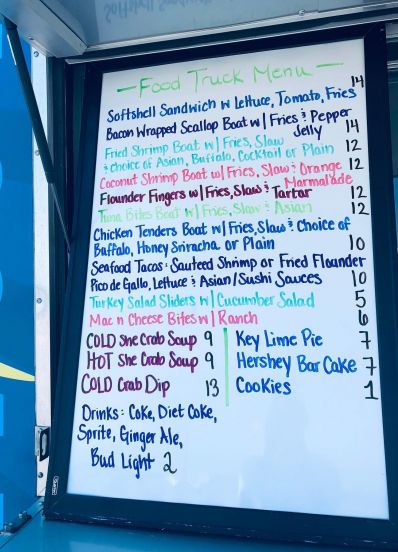 — Food Truck Menu —
Softshell Sandwich w Lettuce, Tomato, Fries 14
Bacon Wrapped Scallop Boat w| Fries & Pepper
Jelly 14
Fried Shrimp Boat w| Fries, Slaw 12
& choice of Asian, Buffalo, Cocktail or Plain
Coconut Shrimp Boat w| Fries, Slaw & Orange 12
Marmalade
Flounder Fingers w| Fries, Slaw & Tartar 12
Tuna Bites Boat w| Fries, Slaw & Asian 12
Chicken Tenders Boat w| Fries, Slaw & Choice of
Buffalo, Honey Sriracha or Plain 10
Seafood Tacos: Sauteed Shrimp or Fried Flounder
Pico de Gallo, Lettuce & Asian/Sushi Sauces 10
Turkey Salad Sliders w| Cucumber Salad 5
Mac n Cheese Bites w| Ranch 6
COLD She Crab Soup 9
HOT She Crab Soup 9
COLD Crab Dip 13
Key Lime Pie 7
Hershey Bar Cake 7
Cookies 1
Drinks: Coke, Diet Coke,
Sprite, Ginger Ale,
Bud Light 2